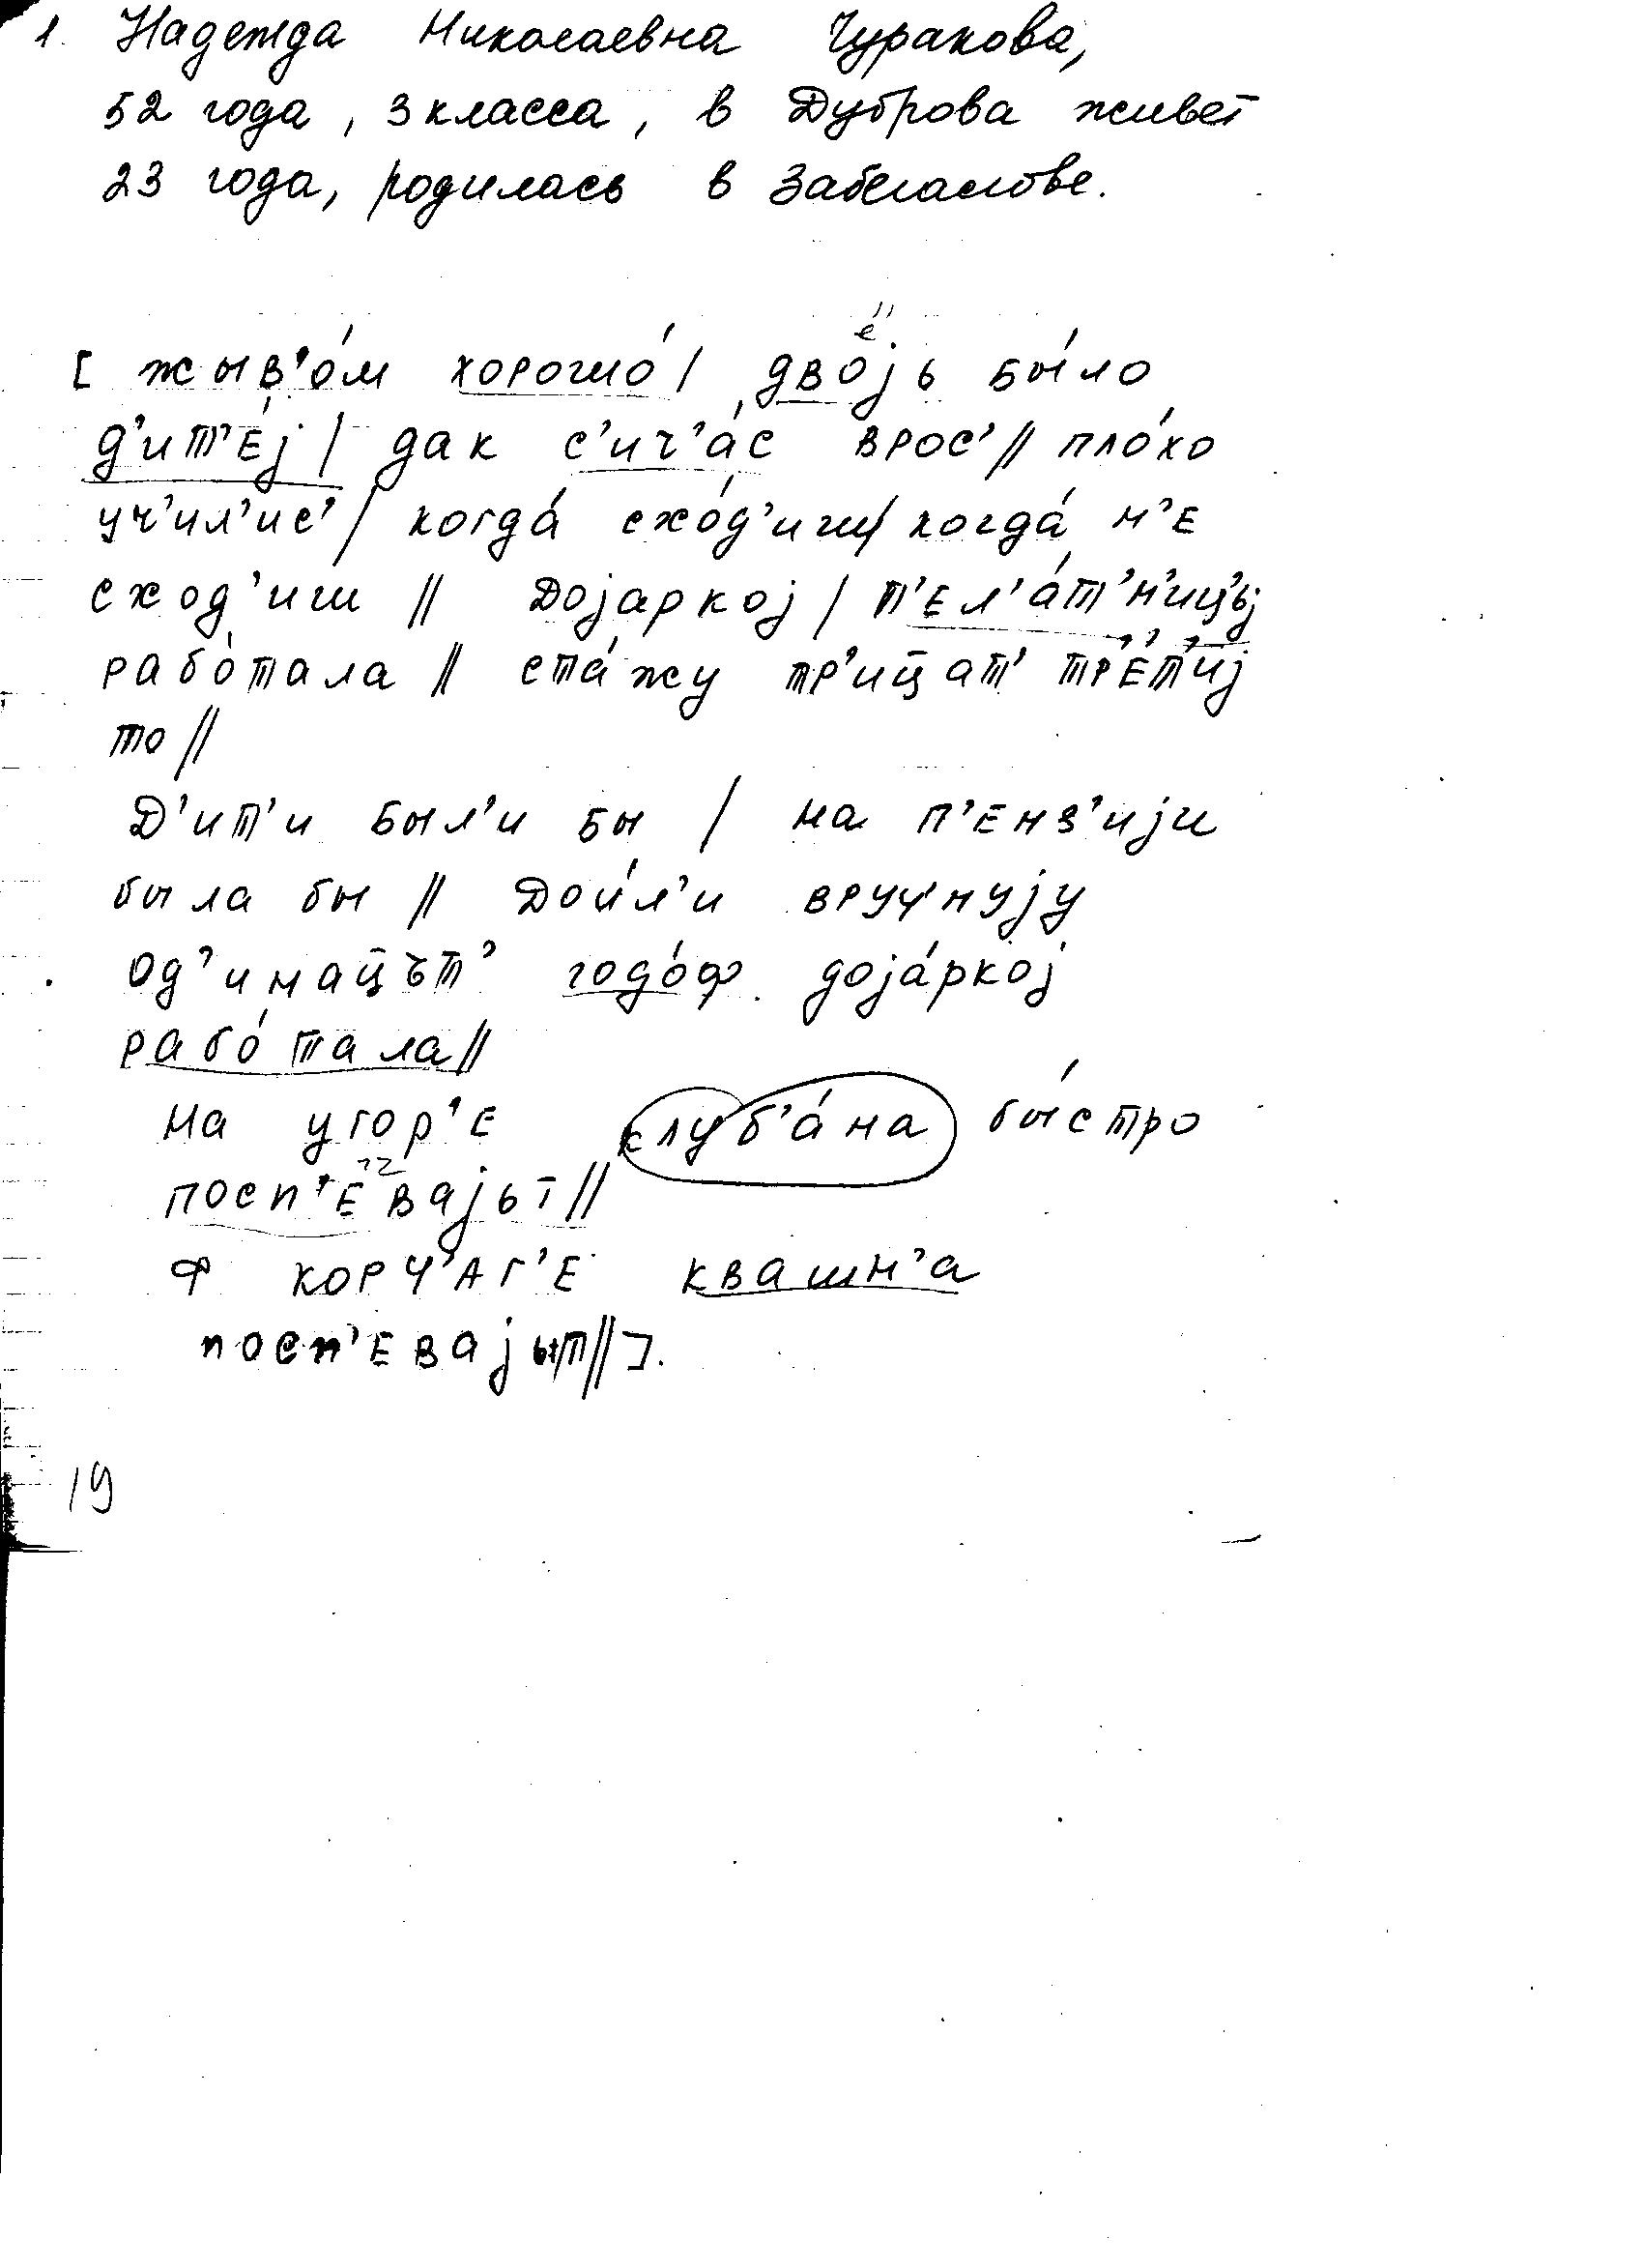 1. Надежда Николаевна Чуракова,
52 года, 3 класса, в Дуброва живет
23 года, родилась в Забегалове.
[ жыв’о́м хорошо́ / двојь бы́ло
д’ит’е́ј / дак с’ич’а́с врос’ // пло́хо
уч’ил’ис’ / когда́ схо́д’иш / когда́ н’е
сход’иш // Дојаркој / т’ел’а́т’н’ицъј
рабо́тала // ста́жу тр’иц̄ат’ тр’е́т’иј
то //
Д’ит’и был’и бы / на п’енз’ији
была бы // Дои́л’и вруч’нују
од’инац̄ът’ годо́ф доја́ркој
рабо́тала //
на угор’е клуб’а́на бы́стро
посп’евајьт //
ф корч’аг’е квашн’а
посп’евајьт // ].
19